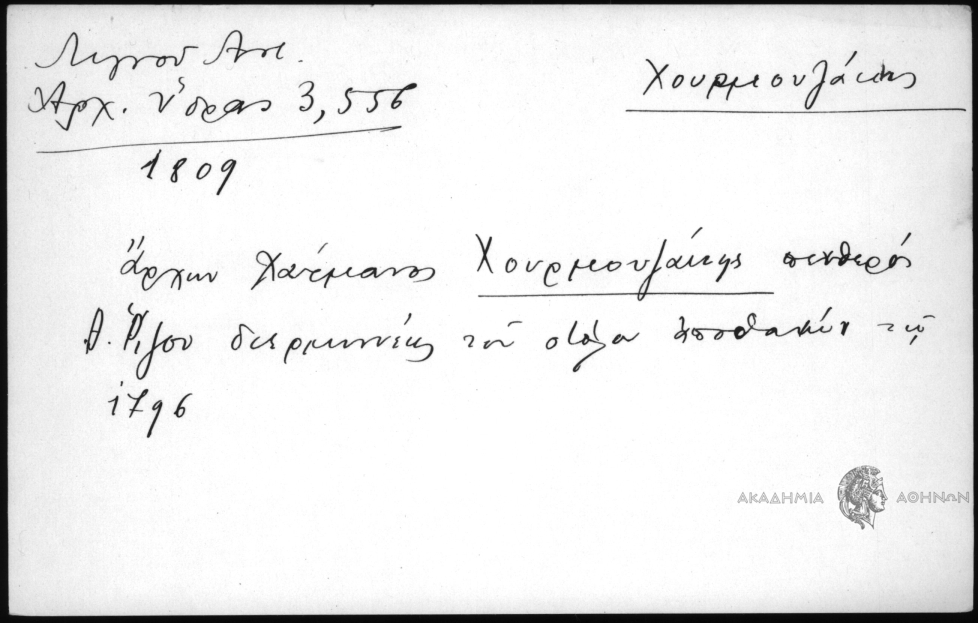 Λιγνού Αντ.
Αρχ. Ύδρας 3,556
Χουρμουζάκης
1809
ἄρχων Χάτμανος Χουρμουζάκης πενθερός
Ἰ. Ρίζου διερμηνέως τοῦ στόλου ἀποθανών τῷ
1796
ΑΚΑΔΗΜΙΑ ΑΘΗΝΩΝ